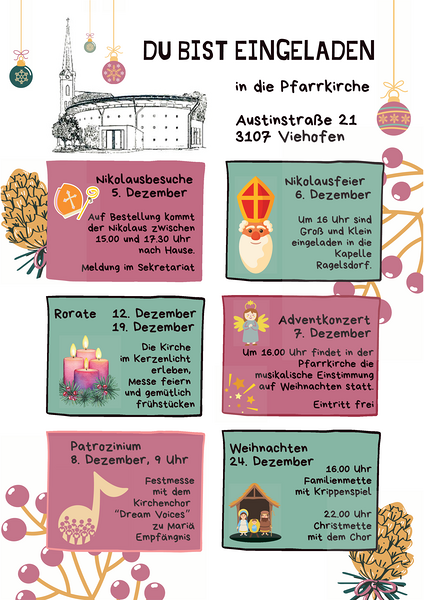 DU BIST EINGELADEN
in die Pfarrkirche
Austinstraße 21
3107 Viehofen
Nikolausbesuche
5. Dezember
Auf Bestellung kommt
der Nikolaus zwischen
15.00 und 17.30 Uhr
nach Hause.
Meldung im Sekretariat
Nikolausfeier
6. Dezember
Um 16 Uhr sind
Groß und Klein
eingeladen in die
Kapelle
Ragelsdorf.
Rorate 12. Dezember
19. Dezember
Die Kirche
im Kerzenlicht
erleben,
Messe feiern
und gemütlich
frühstücken
Adventkonzert
7. Dezember
Um 16.00 Uhr findet in der
Pfarrkirche die
musikalische Einstimmung
auf Weihnachten statt.
Eintritt frei
Patrozinium
8. Dezember, 9 Uhr
Festmesse
mit dem
Kirchenchor
"Dream Voices"
zu Mariä
Empfängnis
Weihnachten
24. Dezember
16.00 Uhr
Familienmette
mit Krippenspiel
22.00 Uhr
Christmette
mit dem Chor